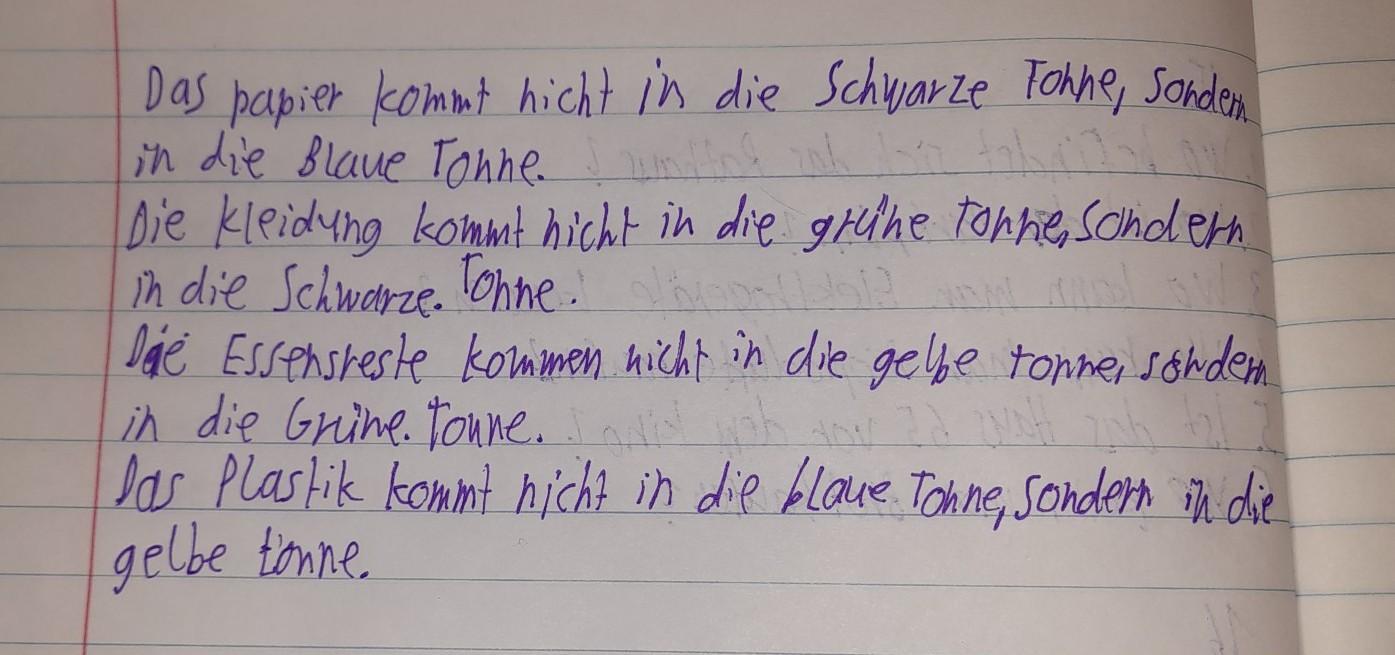 Das papier kommt nicht in die Schwarze Tonne, sondern
in die Blaue Tonne.
Die Kleidung kommt nicht in die grüne Tonne, sondern
in die Schwarze. Tonne.
Die Essensreste kommen nicht in die gelbe tonne, sondern
in die Grüne. Tonne.
Das Plastik kommt nicht in die blaue Tonne, sondern in die
gelbe tonne.